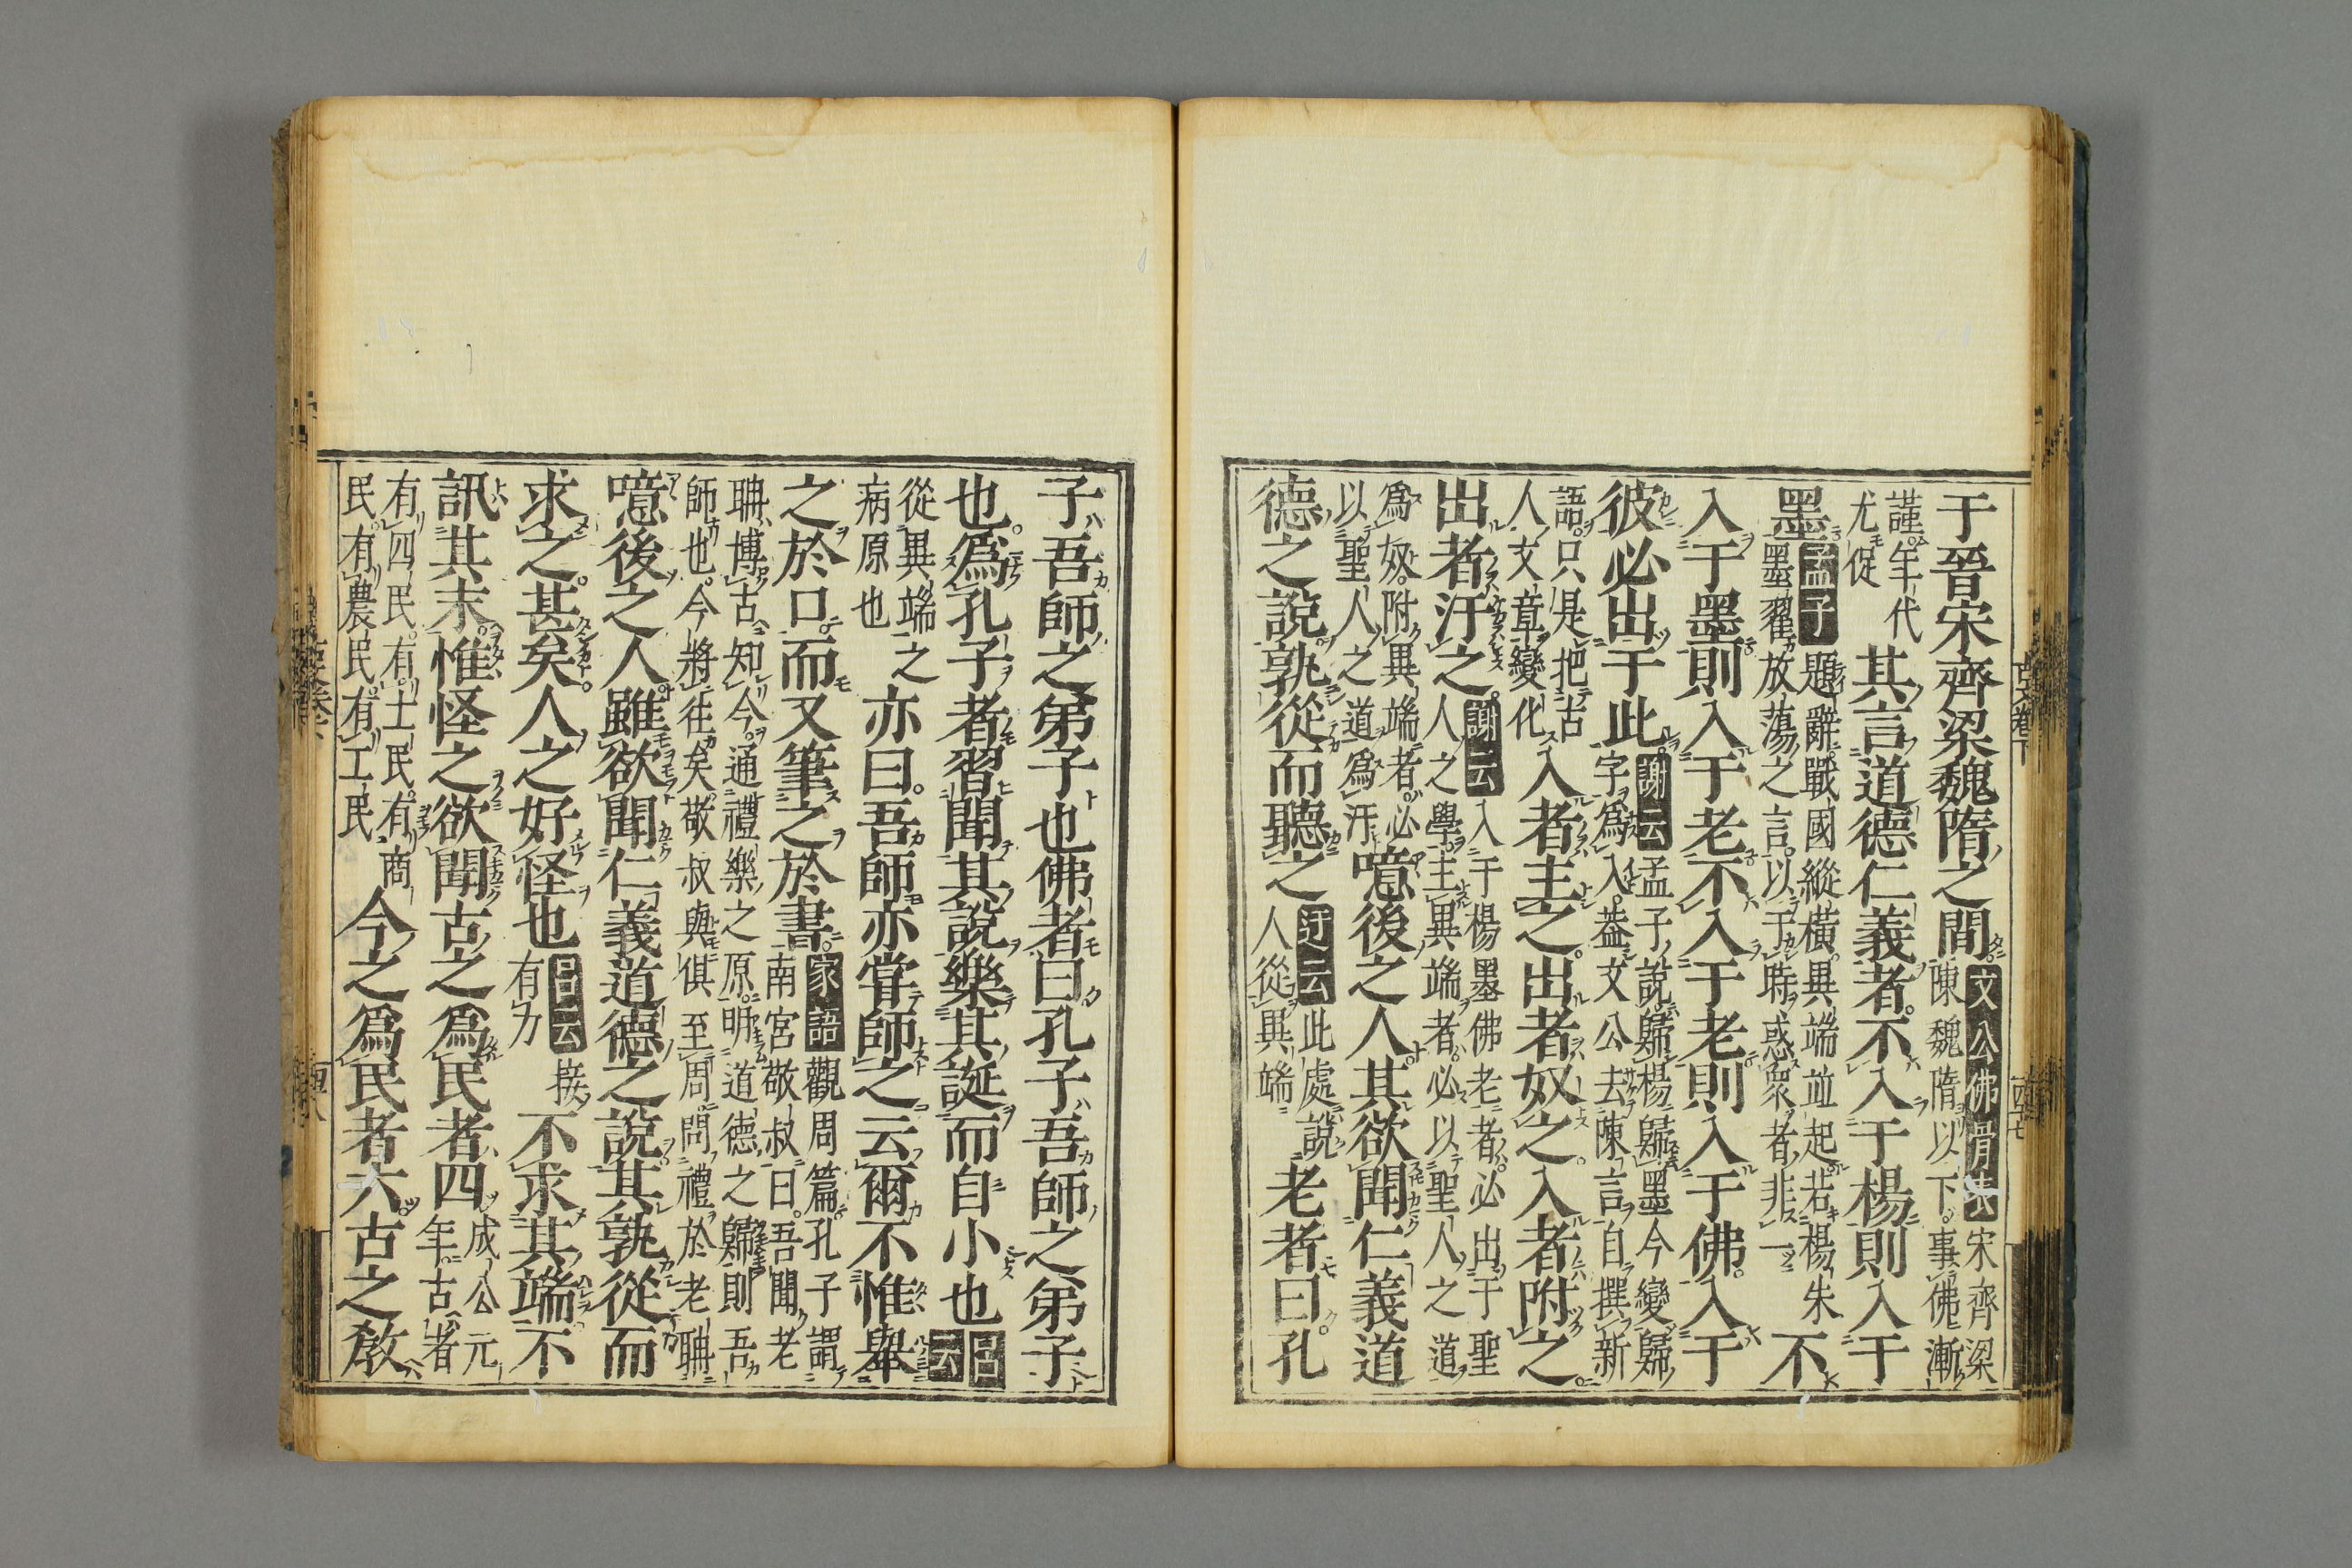 于晉宋齊梁魏隋之間。文公佛骨表宋齊梁陳魏隋以下。事佛漸
謹。年代尤促其言道德仁義者。不入于楊則入于
墨孟子題辭。戰國縱橫。異端並起。若楊朱墨翟放蕩之言。以于時惑衆者。非一不
入于墨則入于老不入于老則入于佛。入于
彼必出于此。謝云孟子說歸楊歸墨今變歸字爲入。蓋文公去陳言自撰新
語。只是把古人文章變化入者主之。出者奴之。入者附之。
出者汙之。謝云入于楊墨佛老者。必出于聖人之學。主異端者。必以聖人之道
爲奴。附異端者。必以聖人之道爲汙噫後之人。其欲聞仁義道
德之說。孰從而聽之迂云此處說人從異端老者曰。孔
子吾師之弟子也佛者曰孔子吾師之弟子
也。爲孔子者習聞其說樂其誕而自小也呂云
從異端之病原也亦曰。吾師亦甞師之云爾不惟舉
之於口。而又筆之於書。家語觀周篇。孔子謂南宮敬叔曰。吾聞老
聃博古知今。通禮樂之原。明道德之歸則吾師也。今將往矣。敬叔與俱至周問禮於老聃
噫後之人。雖欲聞仁義道德之說。其孰從而
求之。甚矣。人之好怪也呂云接有力不求其端不
訊其末。惟怪之欲聞古之爲民者四成公元年。古者
有四民。有士民。有商民。有農民。有工民今之爲民者六。古之敎
古文卷下
四十七